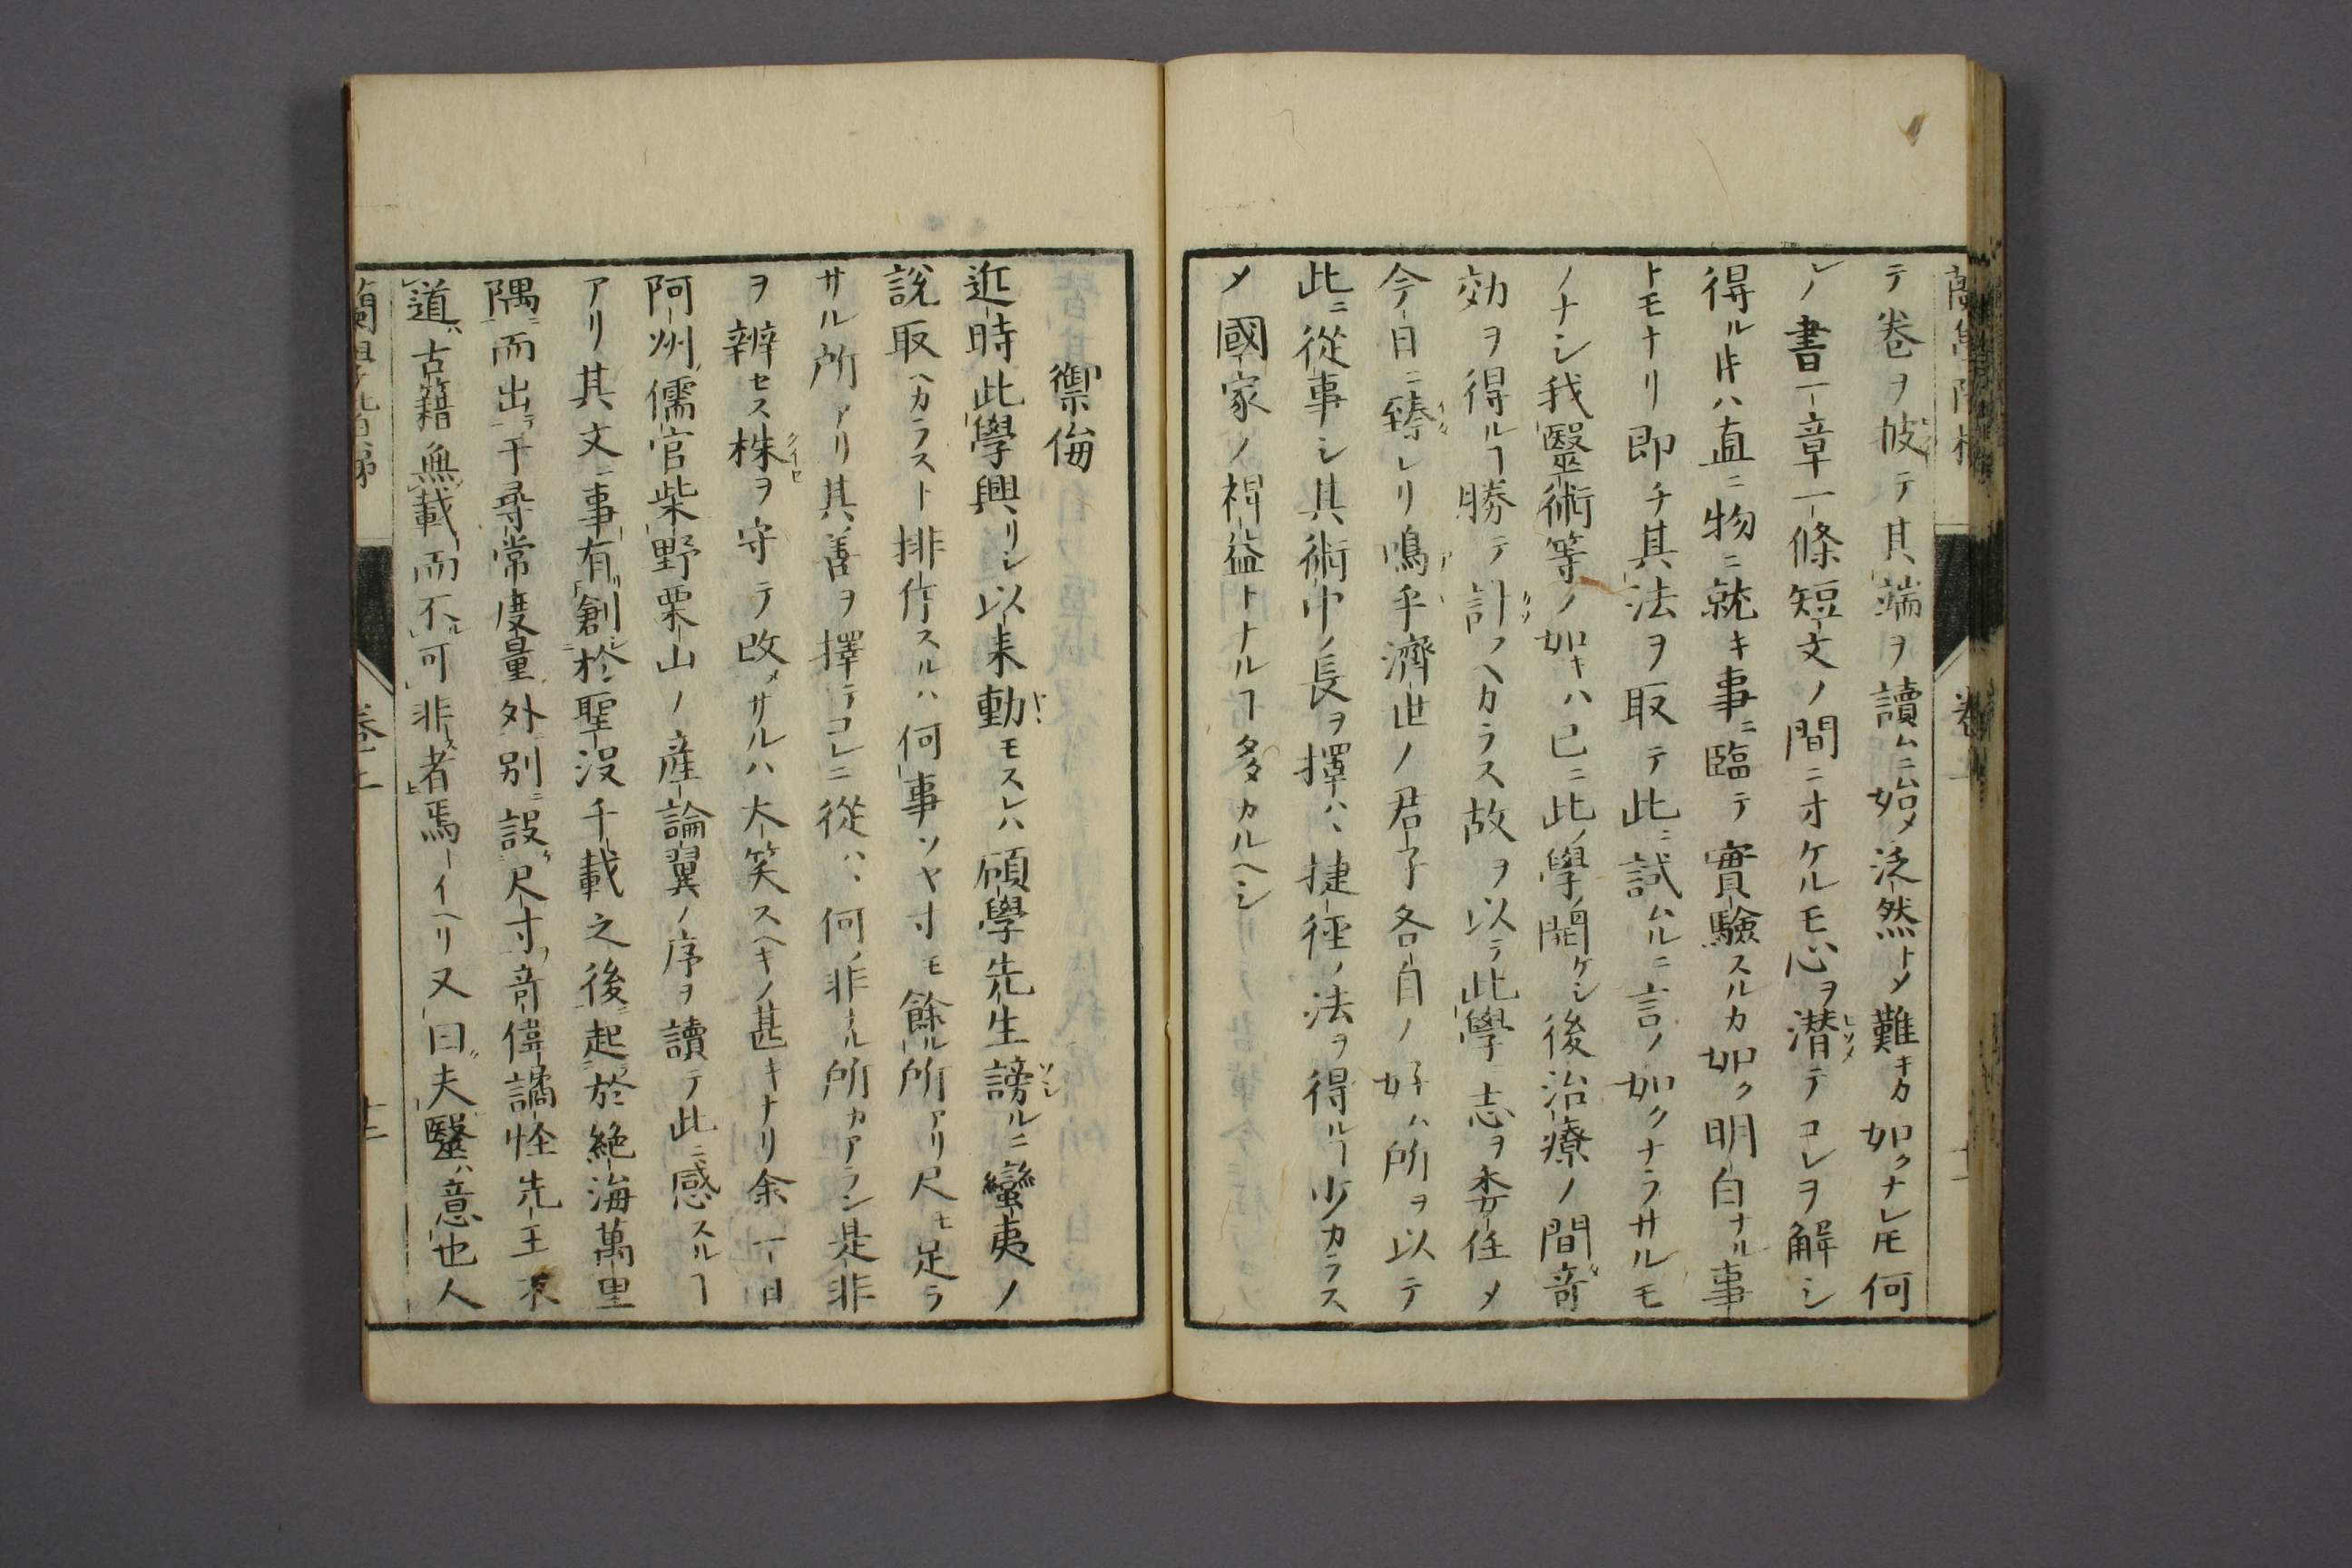 テ卷ヲ披テ其端ヲ讀ムニ始メ泛然トメ難キカ如クナレ𪜈何
レノ書一章一條短文ノ間ニオケルモ心ヲ潜テコレヲ解シ
ヒソメ
得ル𪜈ハ直ニ物ニ就キ事ニ臨テ實驗スルカ如ク明白ナル事
トモナリ即チ其法ヲ取テ此ニ試ムルニ言ノ如クナラサルモ
ノナシ我醫術等ノ如キハ已ニ此ノ學ノ開ケシ後治療ノ間竒
効ヲ得ルヿ勝テ計フヘカラス故ヲ以テ此學ニ志ヲ委任メ
今日ニ臻レリ嗚乎濟世ノ君子各自ノ好ム所ヲ以テ
此ニ從事シ其術中ノ長ヲ擇ハヽ捷徑ノ法ヲ得ルヿ少カラス
メ國家ノ裨益トナルヿ多カルヘシ
禦侮
近時此學興リシ以来動モスレハ碩學先生謗ルニ蠻夷ノ
ソシ
説取ヘカラスト排斥スルハ何事ソヤ寸モ餘ル所アリ尺モ足ラ
サル所アリ其善ヲ擇テコレニ從ハヽ何ノ非ナル所カアラン是非
ヲ辨セス株ヲ守テ改メサルハ大笑スヘキノ甚キナリ余一日
クイセ
阿州ノ儒官柴野栗山ノ産論翼ノ序ヲ讀テ此ニ感スルヿ
アリ其文ニ事有創於聖没千載之後起於絶海萬里
隅而出于尋常度量外別設尺寸竒偉譎怪先王
道ハ古籍無載而不可非者焉トイヘリ又曰夫醫ハ意也人
蘭學階梯
卷上
十二